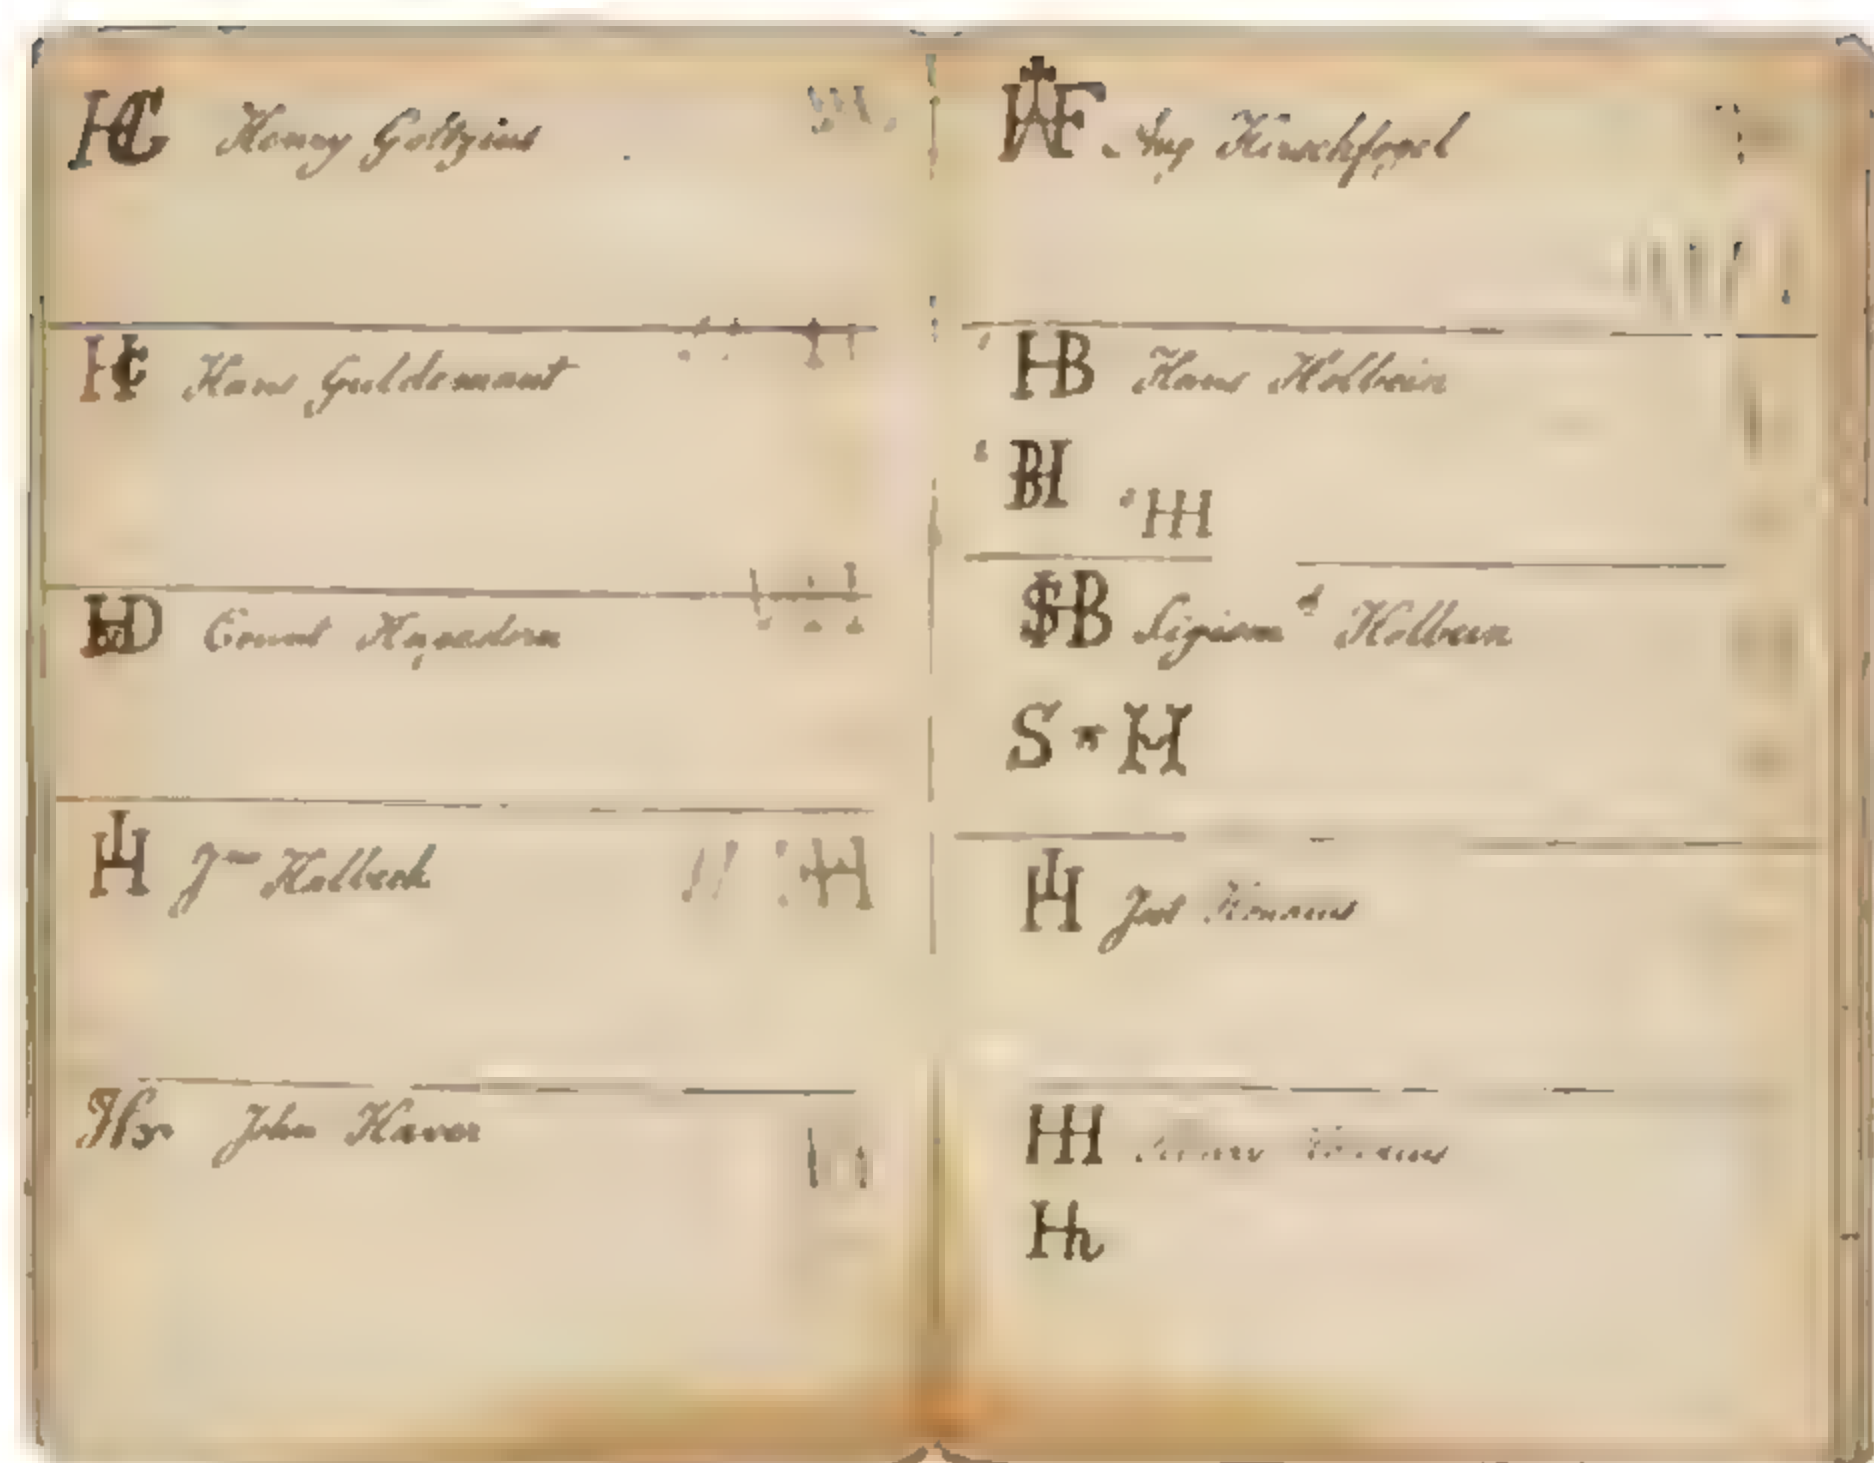 HG Henry Goltzius
HG Hans Guldemant
HD Count Hagedorn
IH Jno Holbech
John Haver
HAF Aug Hirschfogel
HB Hans Holbein
BH
HH
SHB Sigism d Holbein
S * H
IH
HH
Hh